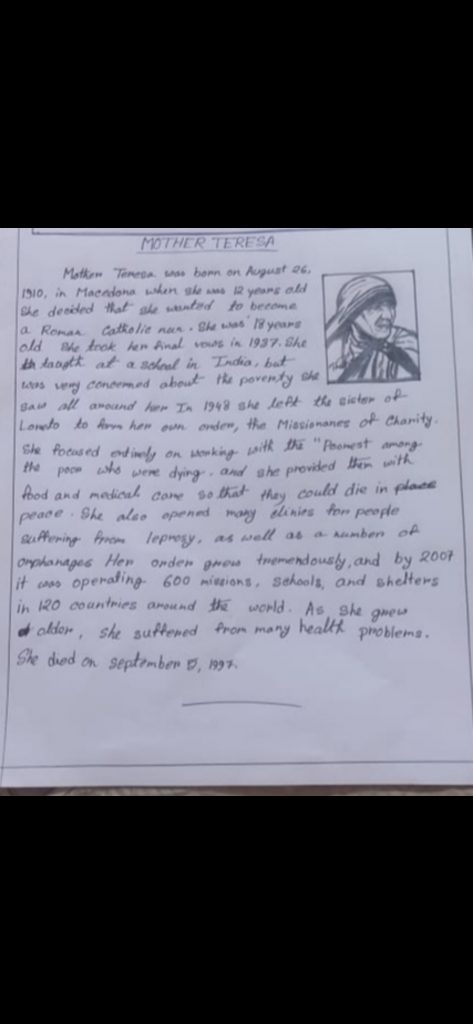 MOTHER TERESA
Mother Teresa was born on August 26,
1910, in Macedona when she was 12 years old
she decided that she wanted to become
a Roman Catholic nun. She was 18 years
old She took her final vows in 1937. She
taugth at a school in India, but
was very concerned about the poverty she
saw all around her In 1948 she left the sister of
Loreto to form her own order, the Missionanes of Charity.
She focused entirely on working with the "Poorest among
the poor who were dying. and she provided them with
food and medical care so that they could die in place
peace. She also opened many clinics for people
suffering from leprosy, as well as a number of
orphanages Her order grew tremendously, and by 2007
it was operating 600 missions, schools, and shelters
in 120 countries around the world. As she grew
older, she suffered from many health problems.
She died on september 5, 1997.